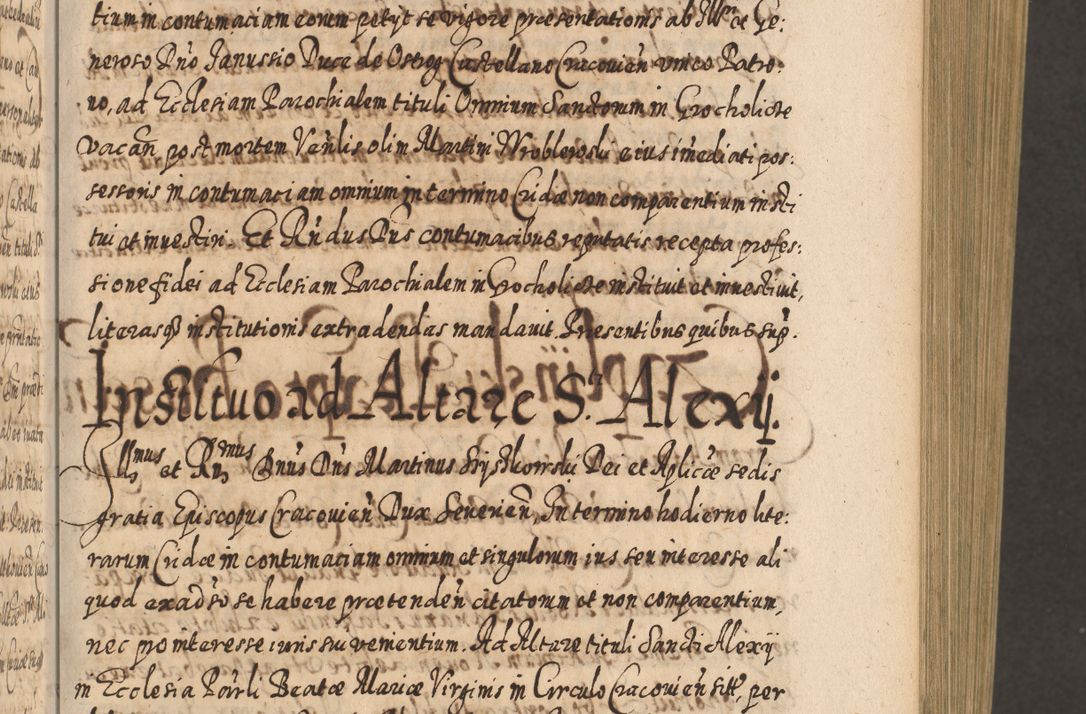 tium in contumaciam eorum petyt se vigore præsentationis ab Illri et Ge:
neroso Dn̄o Janussio Duce de Ostrog Castellano Cracovien̄ unico Patro:
no, ad Ecclesiam Parochialem tituli Omnium Sanctorum in Grocholicze
vacan̄, post mortem Ven̄lis olim Martini Wroblewski eius im̄ediati pos:
sessoris in contumaciam omnium in termino Cridæ non comparentium insti
tui et investiri. Et Rn̄dus Dn̄s contumacibus reputatis recepta profes:
sione fidei ad Ecclesiam Parochialem in Grocholicze instituit et investivit,
literasq3 institutionis extradendas mandavit. Præsentibus quibus sup̄.
Institutio ad Altare Sti Alexij.
Illmus et Rn̄mus Dn̄us Dn̄s Martinus Szyszkowski Dei et Ap̄licæ sedis
gratia Episcopus Cracovien̄ Dux Severien̄, In termino hodierno lite:
rarum Cridæ in contumaciam omnium et singulorum ius seu interesse ali
quod ex adverso se habere prætenden̄ citatorum et non comparentium,
nec pro interesse iuris sui venientium. Ad Altare tituli Sancti Alexij
in Ecclesia Par̄li Beatæ Mariæ Virginis in Circulo Cracovien̄ sitt, per